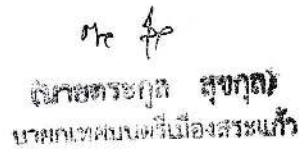 (นายตระกูล สุขกุล)
นายกเทศมนตรีเมืองสระแก้ว